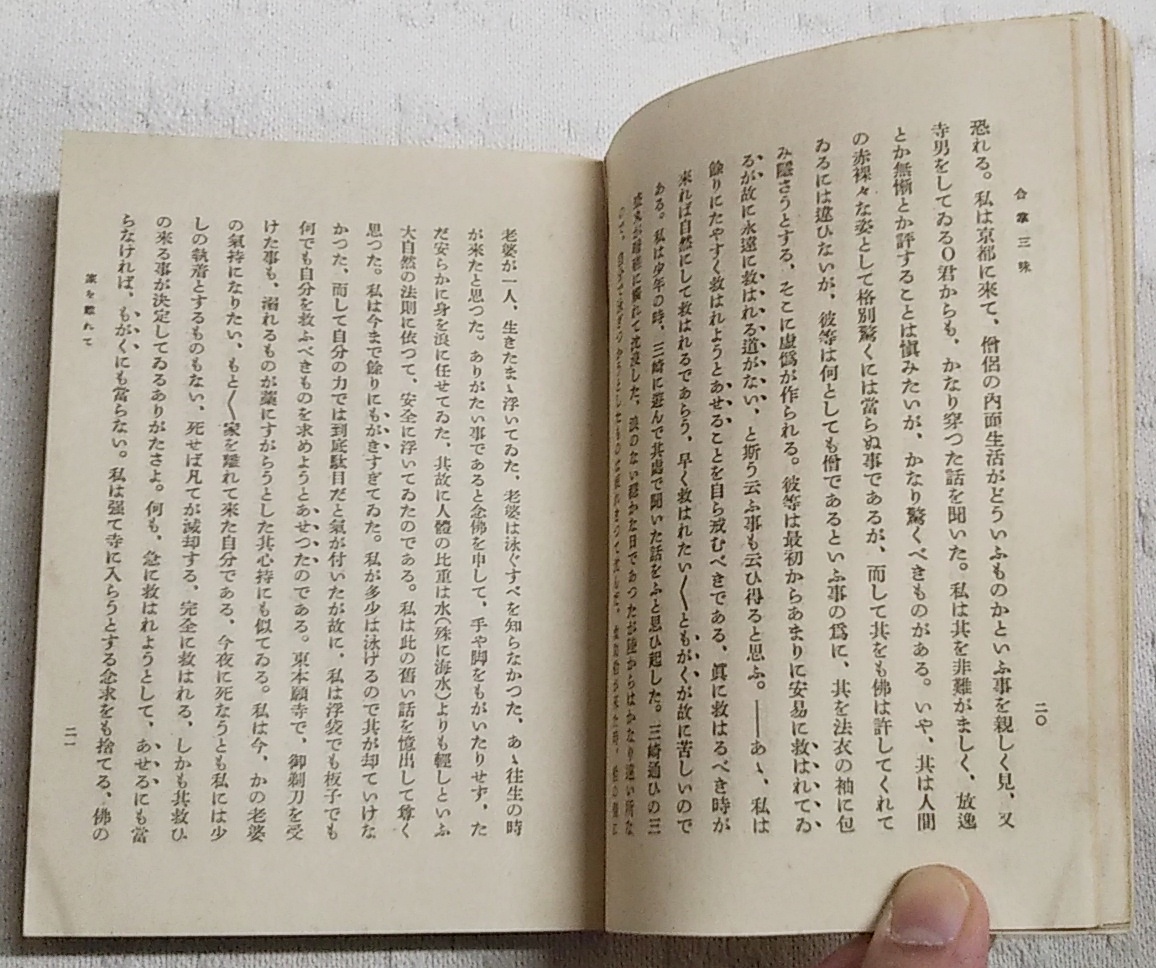 合掌三昧
二〇
恐れる。私は京都に來て、僧侶の內面生活がどういふものかといふ事を親しく見、又
寺男をしてゐるO君からも、かなり穿つた話を聞いた。私は其を非難がましく、放逸
とか無慚とか評することは愼みたいが、かなり驚くべきものがある。いや、其は人間
の赤裸々な姿として格別驚くには當らぬ事であるが、而して其をも佛は許してくれて
ゐるには違ひないが、彼等は何としても僧であるといふ事の爲に、其を法衣の袖に包
み隱さうとする、そこに虛僞が作られる。彼等は最初からあまりに安易に救はれてゐ
るが故に永遠に救はれる道がない、と斯う云ふ事も云ひ得ると思ふ。――あゝ、私は
餘りにたやすく救はれようとあせることを自ら戒むべきである、眞に救はるべき時が
來れば自然にして救はれるであらう、早く救はれたい〱ともがくが故に苦しいので
ある。私は少年の時、三崎に遊んで其處で聞いた話をふと思ひ起した。三崎通ひの三
に觸れて沈沒した、浪のない穩かな日であつたが陸からはかなり遠い所な
老婆が一人、生きたまゝ浮いてゐた、老婆は泳ぐすべを知らなかつた、あゝ往生の時
が來たと思つた。ありがたい事であると念佛を申して、手や脚をもがいたりせず、た
だ安らかに身を浪に任せてゐた、其故に人體の比重は水(殊に海水)よりも輕しといふ
大自然の法則に依つて、安全に浮いてゐたのである。私は此の舊い話を憶出して尊く
思つた。私は今まで餘りにもがきすぎてゐた。私が多少は泳げるので其が却ていけな
かつた、而して自分の力では到底駄目だと氣が付いたが故に、私は浮袋でも板子でも
何でも自分を救ふべきものを求めようとあせつたのである。東本願寺で、御剃刀を受
けた事も、溺れるものが藁にすがらうとした其心持にも似てゐる。私は今、かの老婆
の氣持になりたい、もと〱家を離れて來た自分である、今夜に死なうとも私には少
しの執着とするものもない、死せば凡てが滅却する、完全に救はれる、しかも其救ひ
の來る事が決定してゐるありがたさよ。何も、急に救はれようとして、あせるにも當
らなければ、もがくにも當らない。私は强て寺に入らうとする念求をも捨てる、佛の
家を離れて
二一